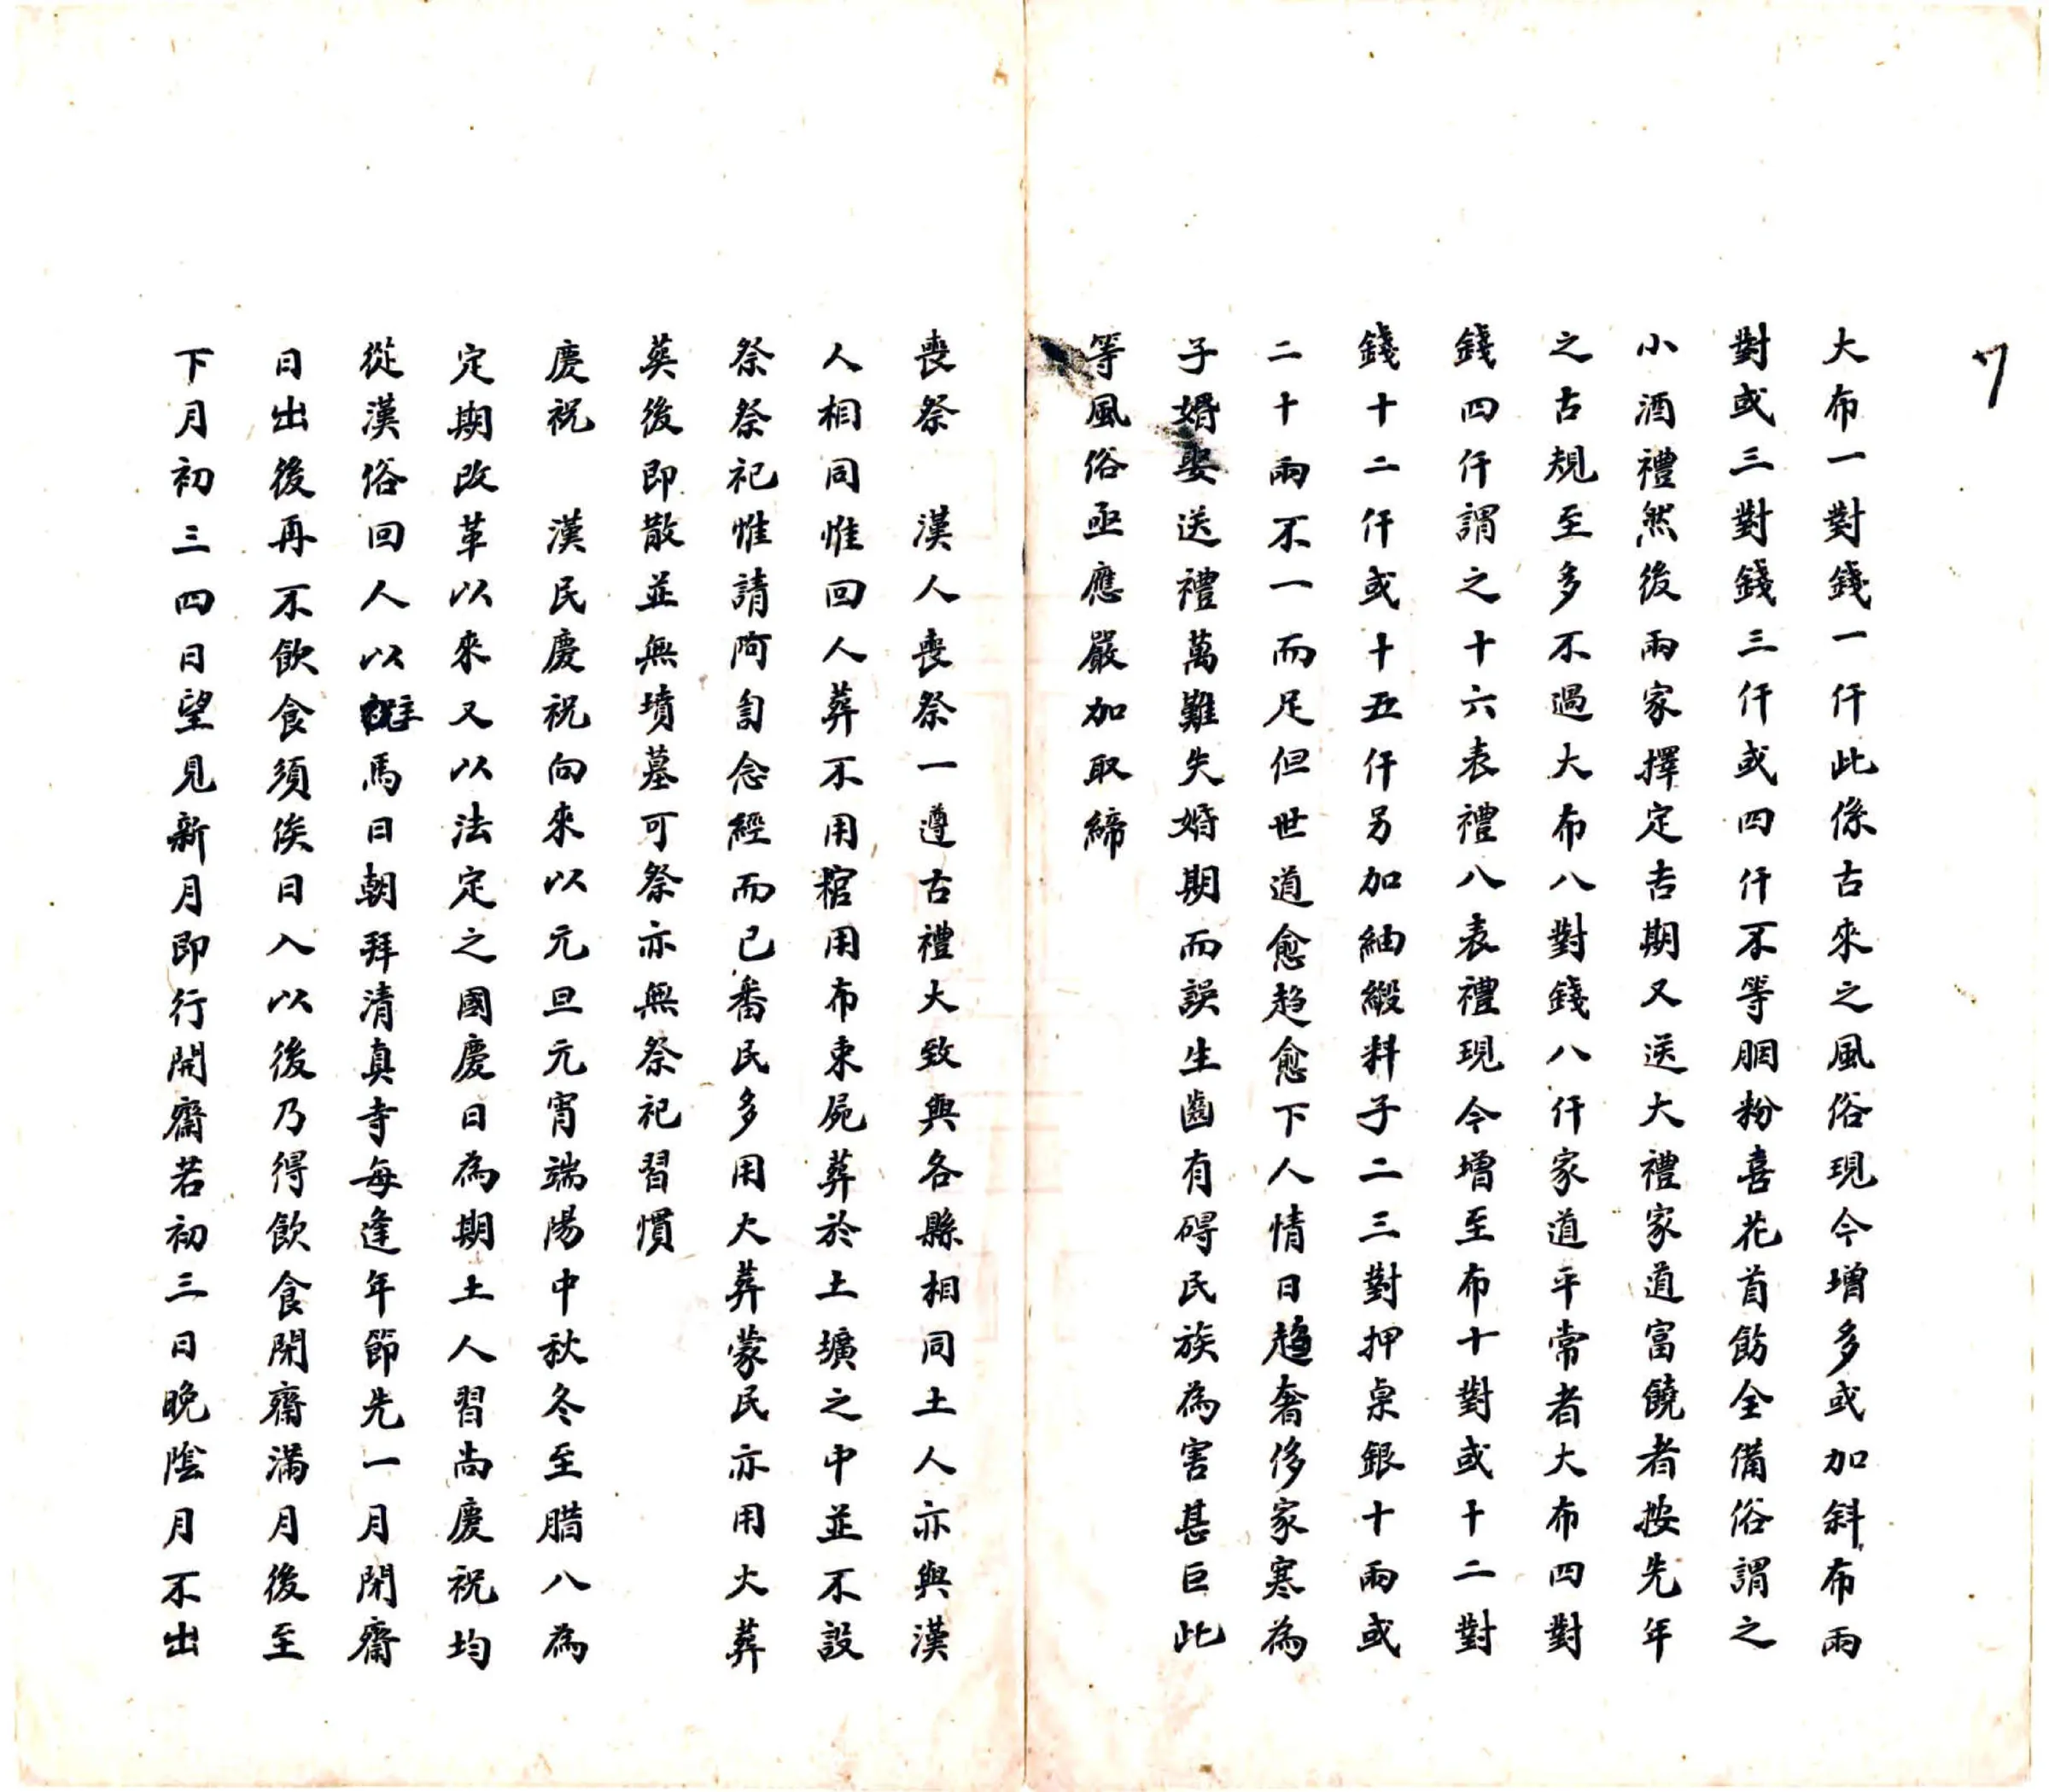 大布一對錢一仟此係古來之風俗現今增多或加斜布兩
對或三對錢三仟或四仟不等胭粉喜花首飭全備俗謂之
小酒禮然後兩家擇定吉期又送大禮家道富饒者按先年
之古規至多不過大布八對錢八仟家道平常者大布四對
錢四仟謂之十六表禮八表禮現今增至布十對或十二對
錢十二仟或十五仟另加紬緞料子二三對押桌銀十兩或
二十兩不一而足但世道愈趋愈下人情日趨奢侈家寒為
子婿娶送禮萬難失婚期而誤生齒有碍民族為害甚巨此
等風俗亟應嚴加取締
喪祭　漢人喪祭一遵古禮大致與各縣相同土人亦與漢
人相同惟回人葬不用棺用布束屍葬於土壙之中並不設
祭祭祀惟請阿訇念經而已番民多用火葬蒙民亦用火葬
葬後即散並無墳墓可祭亦無祭祀習慣
慶祝　漢民慶祝向來以元旦元宵端陽中秋冬至腊八為
定期改革以來又以法定之國慶日為期土人習尚慶祝均
從漢俗回人以主馬日朝拜清真寺每逢年節先一月閉齋
日出後再不飲食須俟日入以後乃得飲食閉齋滿月後至
下月初三四日望見新月即行開齋若初三日晚陰月不出